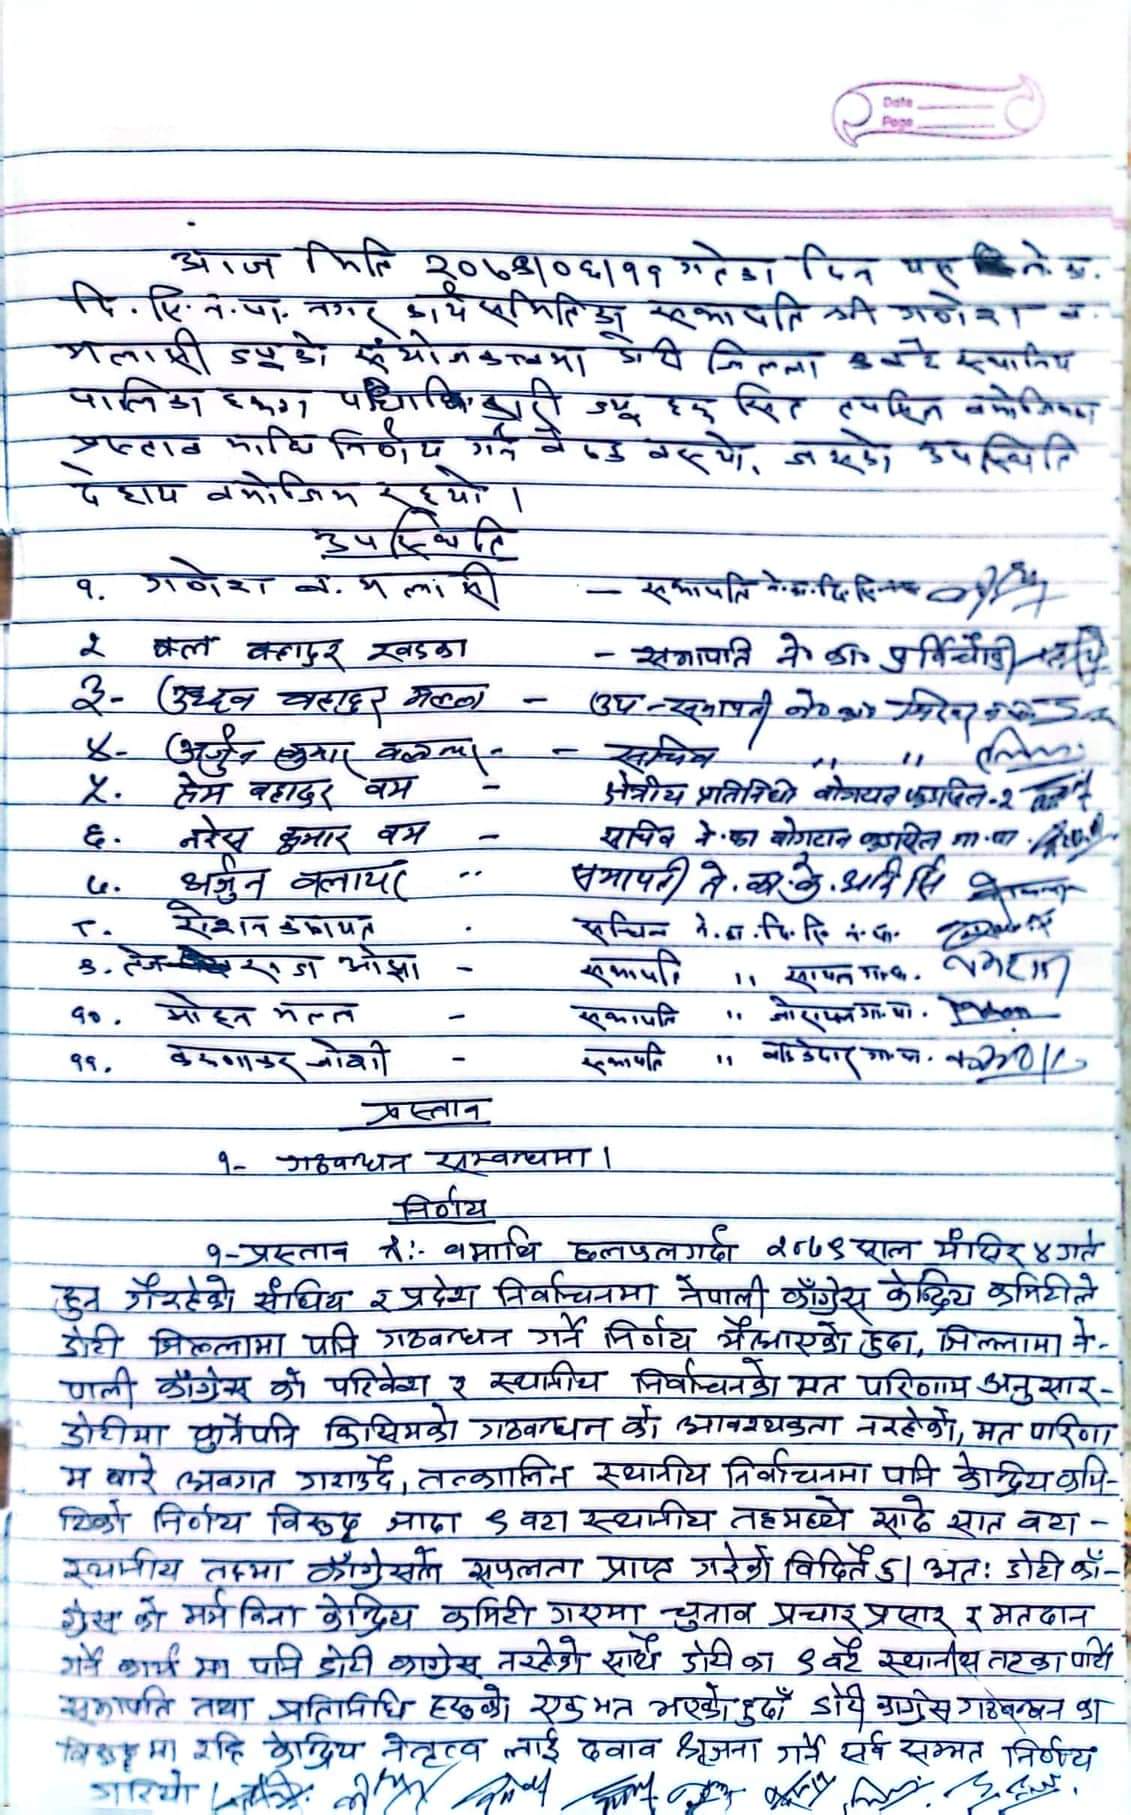 Date
Page
आज मिति २०७९/०६/११ गतेका दिन यह ने.का.
दि. सि. न.पा. नगर कार्य समितिका सभापति श्री गणेश ब.
मलासी ज्यूको संयोजकत्वमा डोटी जिल्ला स्थानिय
पालिका हरुका पदाधिकारी ज्यू हरु सहित तपसिल बमोजिमका
प्रस्ताव माथि निर्णय गर्न बैठक बस्यो, जसको उपस्थिति
देहाय बमोजिम रह्यो ।
उपस्थिति
१. गणेश ब. मलासी – सभापति ने.का.दि.सि.न.पा.
२ बल बहादुर खडका – सभापति ने० का० पूर्विचौकी
३- उध्दव बहादुर मल्ल – उप-सभापती ने० का०
४- अर्जुन कुमार – सचिव " "
५. हेम बहादुर बम – क्षेत्रीय प्रतिनिधी बोगटान फुडसिल-२
६. नरेस कुमार बम – सचिव ने.का बोगटान फुडसिल गा.पा.
७. अर्जुन बलायर .. सभापती ने.का.के.आई सिं
८. रोशन . सचिव ने.का.दि.सि.न.पा.
९. तेज ओझा – सभापति " सायल गा.पा.
१०. मोहन मल्ल – सभापति " जोरायल गा.पा.
११. करुणाकर जोशी – सभापति " बडिकेदार गा.पा.
प्रस्ताव
१- गठबन्धन सम्बन्धमा ।
निर्णय
१-प्रस्ताव नं:- १ माथि छलफल गर्दा २०७९ साल मंसिर ४ गते
हुन गैरहेको संघिय र प्रदेश निर्वाचनमा नेपाली काँग्रेस केन्द्रिय कमिटीले
डोटी जिल्लामा पनि गठबन्धन गर्ने निर्णय भैआएको हुदा, जिल्लामा ने-
पाली काँग्रेस को परिवेश र स्थानीय निर्वाचनको मत परिणाम अनुसार-
डोटीमा कुनैपनि किसिमको गठबन्धन को आवश्यकता नरहेको, मत परिणा
म बारे अवगत गराउदै, तत्कालिन स्थानीय निर्वाचनमा पनि केन्द्रिय कमि-
टिको निर्णय विरुद्ध जादा ९ वटा स्थानीय तहमध्ये साढे सात वटा -
स्थानीय तहमा काँग्रेसले सफलता प्राप्त गरेको विदितै छ। अतः डोटी काँ-
ग्रेस को मर्म विना केन्द्रिय कमिटी गएमा चुनाव प्रचार प्रसार र मतदान
गर्ने कार्य मा पनि डोटी काग्रेस नरहेको साथै डोटी का ९ वटै स्थानीय तहका पार्टी
सभापति तथा प्रतिनिधि हरुको एक मत भएको हुदाँ डोटी काग्रेस गठबन्धन का
विरुद्ध मा रहि केन्द्रिय नेतृत्व लाई दवाव श्रृजना गर्ने सर्व सम्मत निर्णय
गरियो ।